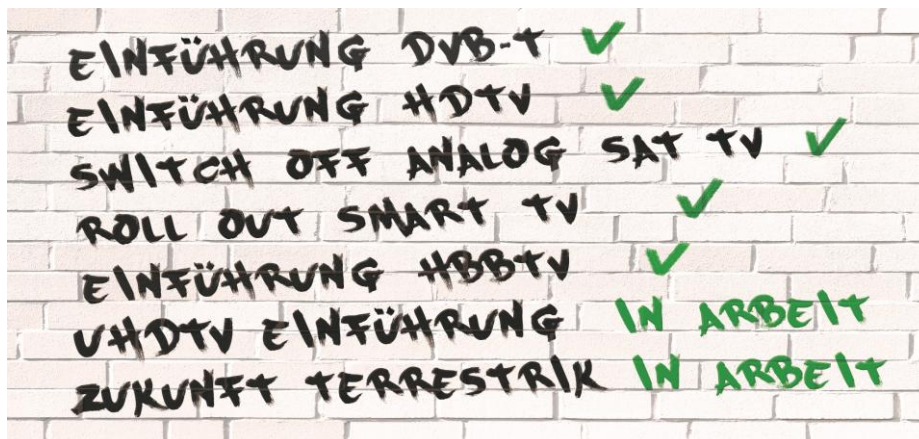 EINFÜHRUNG DVB-T ✓
EINFÜHRUNG HDTV ✓
SWITCH OFF ANALOG SAT TV ✓
ROLL OUT SMART TV ✓
EINFÜHRUNG HBBTV ✓
UHDTV EINFÜHRUNG IN ARBEIT
ZUKUNFT TERRESTRIK IN ARBEIT